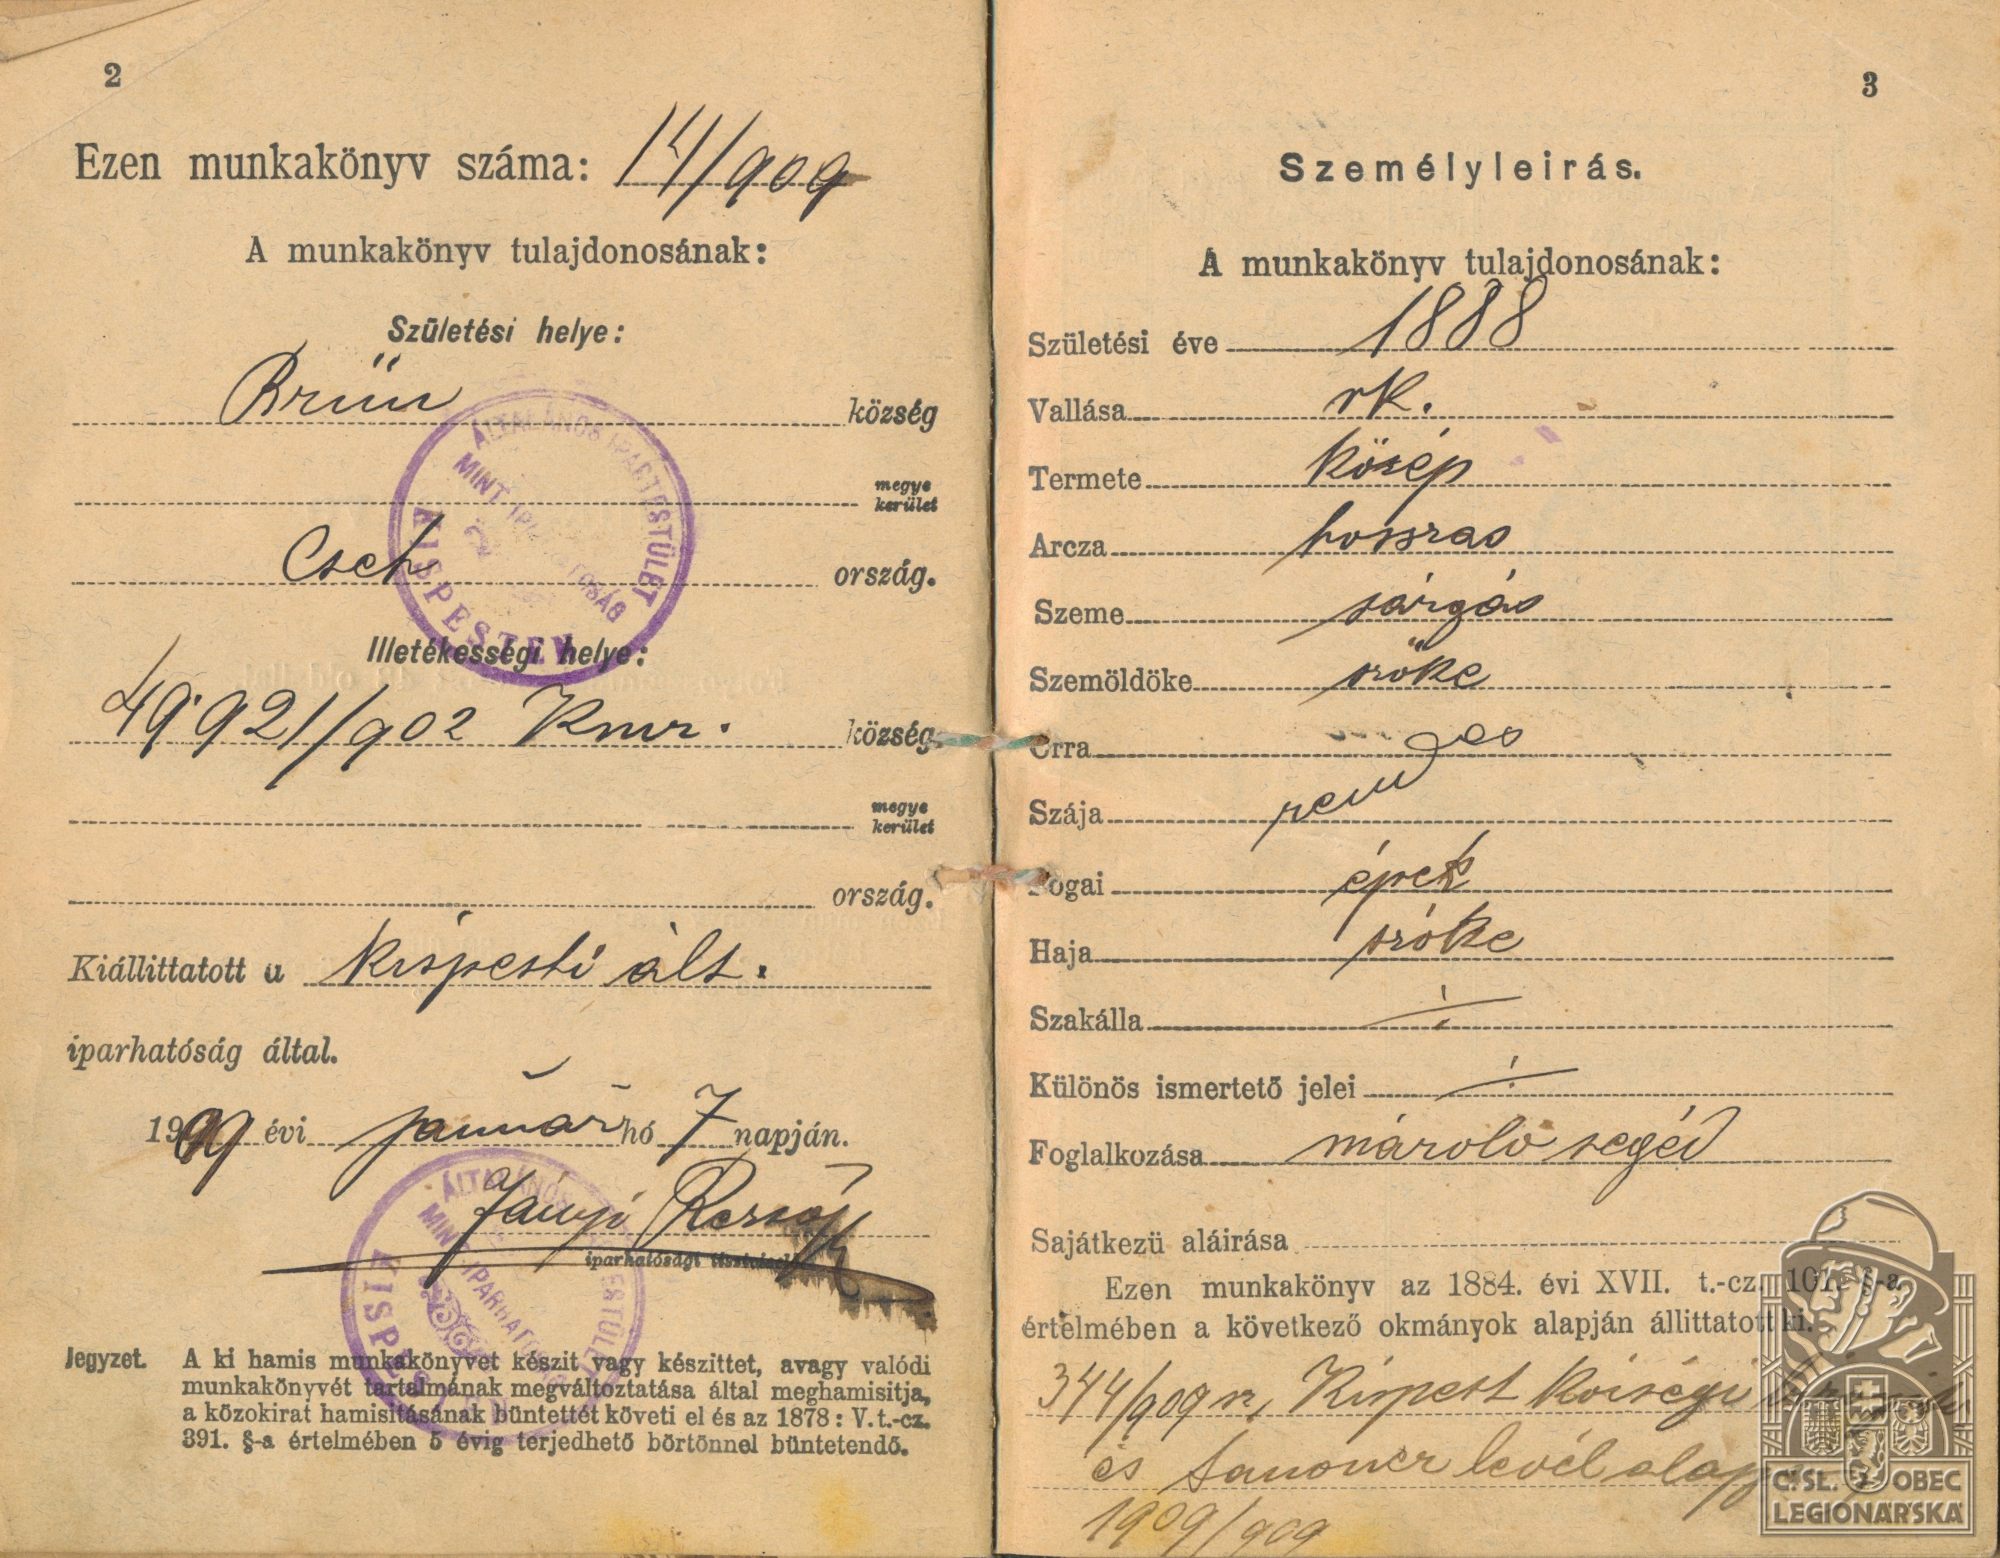 2
Ezen munkakönyv száma: 14/909
A munkakönyv tulajdonosának:
Születési helye:
Brünn község
megye
kerület
Cseh ország.
Illetékességi helye:
49.921/902 Kmr. község
megye
kerület
ország.
Kiállittatott a Kispesti ált.
iparhatóság által.
1909 évi január hó 7 napján.
iparhatósági
ÁLTALÁNOS IPARTESTÜLET
MINT IPARHATÓSÁG
KISPESTEN
Jegyzet. A ki hamis munkakönyvet készit vagy készittet, avagy valódi
munkakönyvét tartalmának megváltoztatása által meghamisitja,
a közokirat hamisitásának büntettét követi el és az 1878: V. t.-cz.
391. §-a értelmében 5 évig terjedhető börtönnel büntetendő.
3
Személyleirás.
A munkakönyv tulajdonosának:
Születési éve 1888
Vallása rk.
Termete közép
Arcza hosszas
Szeme sárgás
Szemöldöke szőke
Orra rendes
Szája
Fogai épek
Haja szőke
Szakálla ÷
Különös ismertető jelei ÷
Foglalkozása mároló segéd
Sajátkezü aláirása
Ezen munkakönyv az 1884. évi XVII. t.-cz. 101. §-a
értelmében a következő okmányok alapján állittatott ki.
344/909 Kispest Községi
és levél
1909/909
Č. SL. OBEC
LEGIONÁŘSKÁ